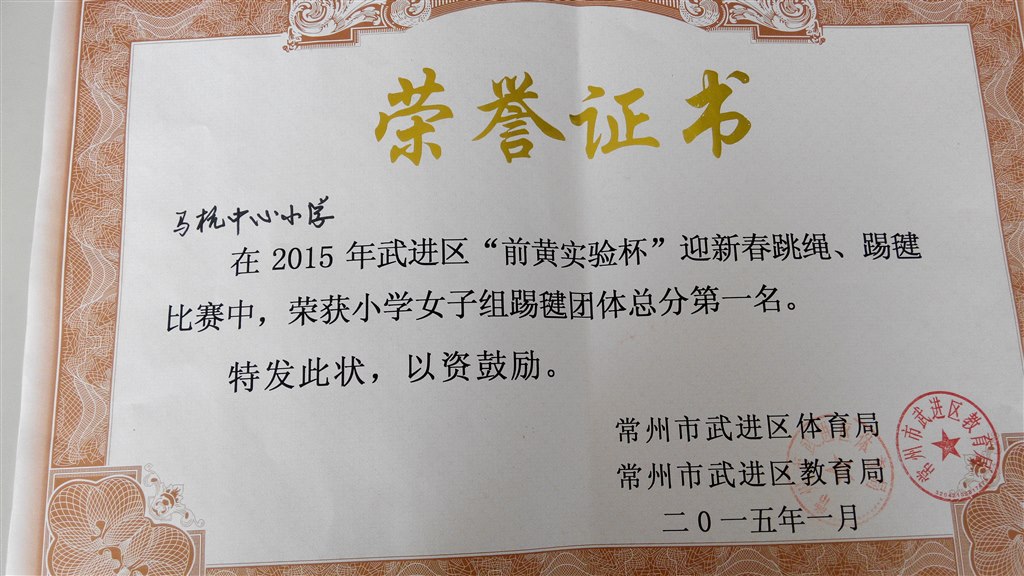 荣誉证书
马杭中心小学
在 2015 年武进区“前黄实验杯”迎新春跳绳、踢毽
比赛中，荣获小学女子组踢毽团体总分第一名。
特发此状，以资鼓励。
常州市武进区体育局
常州市武进区教育局
二0一五年一月
常州市武进区教育局